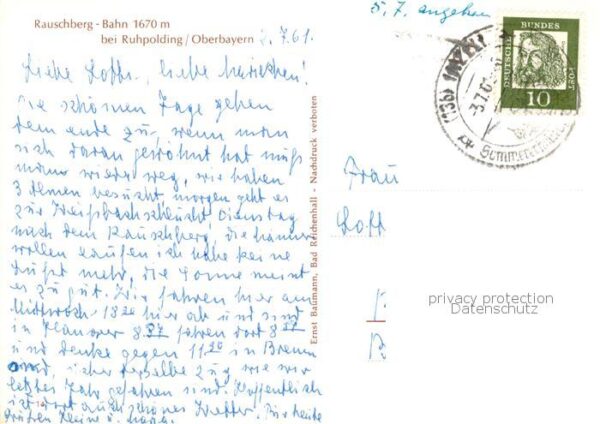 Rauschberg - Bahn 1670 m
bei Ruhpolding / Oberbayern
2.7.61.
5.7. angehen
Liebe Lotte, liebe
die schönen Tage gehen
dem ende zu, wenn man
sich daran gewöhnt hat muß
mann wieder weg, wir haben
3 besucht, morgen geht es
zur Weißbachschlucht, Dienstag
nach dem Rauschberg, die
wollen laufen ich habe keine
Lust mehr, die Sonne meint
es zu gut. Wir fahren hier am
Mittwoch 18 20 hier ab und sind
in Hannover 8. fahren dort 8
und denke gegen 11.20 in Bremen
sind, selbe Zug wie wir
letztes Jahr gefahren sind. Hoffentlich
ist dort auch schönes Wetter. Für heute
Grüßen Heini u.
Ernst Baumann, Bad Reichenhall - Nachdruck verboten
DEUTSCHE BUNDESPOST
10
(13b)
3.7.61
Frau
Lott
privacy protection
Datenschutz